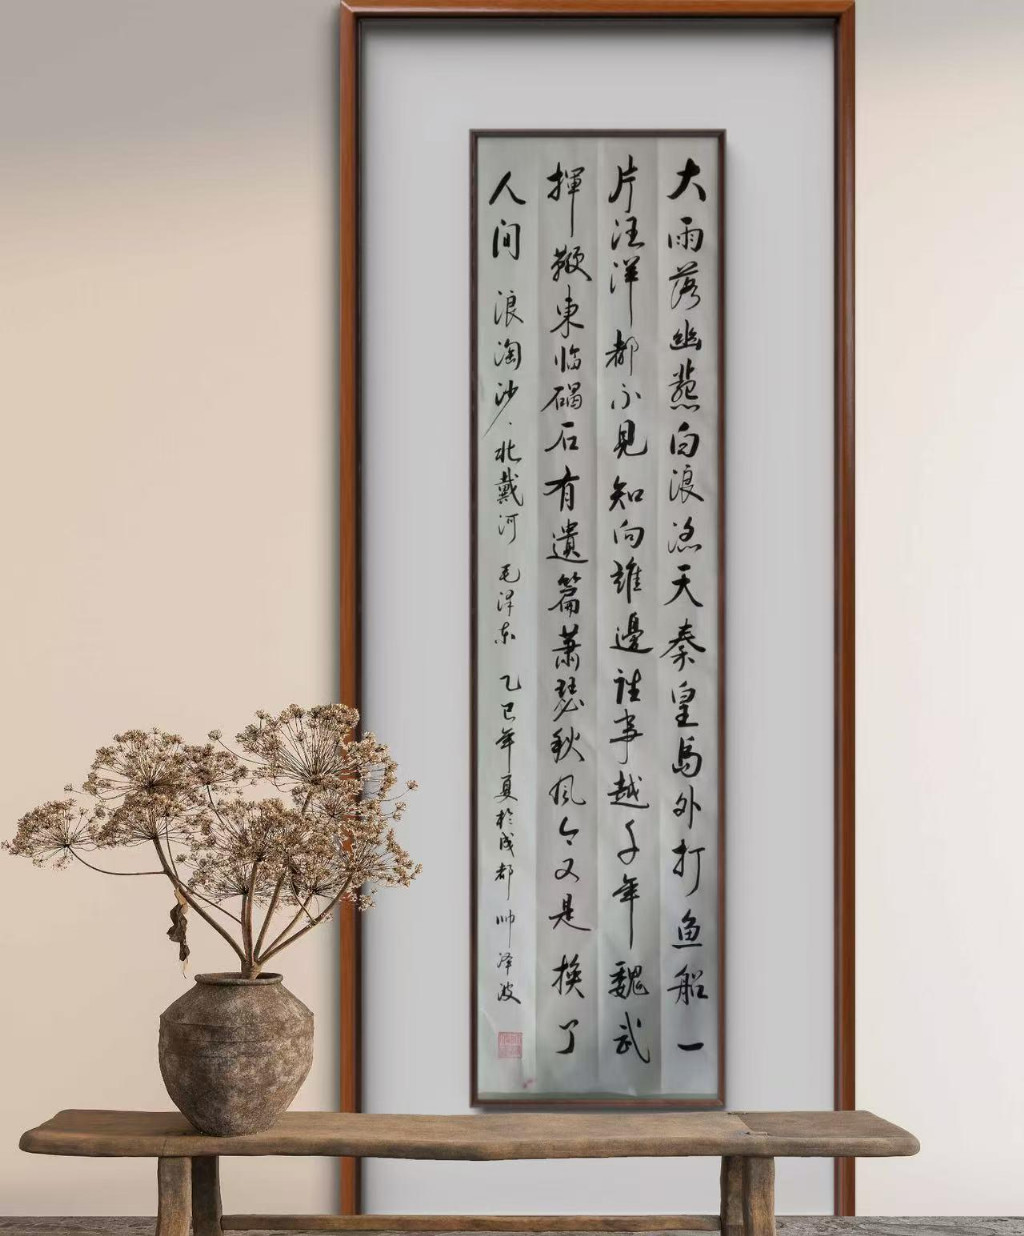 大雨落幽燕白浪滔天秦皇岛外打鱼船一
片汪洋都不見知向誰邊往事越千年魏武
揮鞭東临碣石有遺篇蕭瑟秋风今又是换了
人间 浪淘沙·北戴河 毛泽东 乙巳年夏於成都 帅泽波